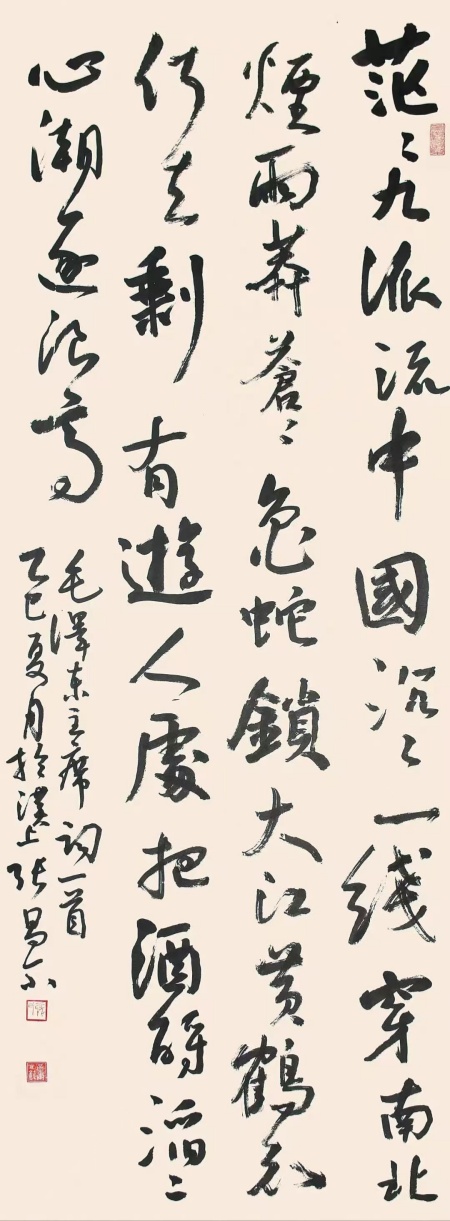 茫々九派流中國沉々一綫穿南北
煙雨莽蒼々龜蛇鎖大江黄鶴知
何去剩有遊人處把酒酹滔々
心潮逐浪高
毛澤東主席詞一首
乙巳夏月於漢上張昌